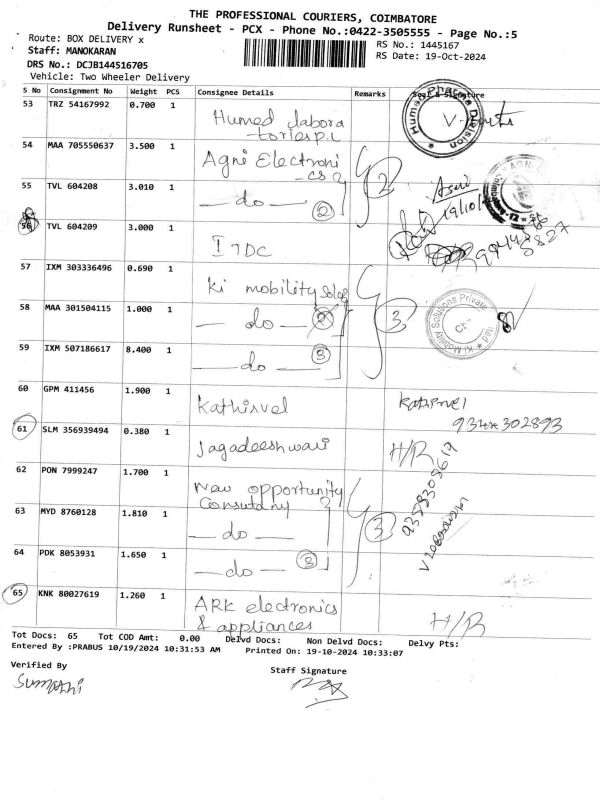 THE PROFESSIONAL COURIERS, COIMBATORE
Delivery Runsheet - PCX - Phone No.:0422-3505555 - Page No.:5
Route: BOX DELIVERY x
RS No.: 1445167
Staff: MANOKARAN
RS Date: 19-Oct-2024
DRS No.: DCJB144516705
Vehicle: Two Wheeler Delivery
S No Consignment No Weight PCS Consignee Details Remarks Seal & Signature
53 TRZ 54167992 0.700 1 Humed labora
tories p.L
Humed Pharma Division
54 MAA 705550637 3.500 1 Agni Electroni
cs
55 TVL 604208 3.010 1 — do — 2
2
19/10/
56 TVL 604209 3.000 1 ITDC
57 IXM 303336496 0.690 1 Ki mobility Solos
58 MAA 301504115 1.000 1 — do —
3
Ki Mobility Solutions Private
59 IXM 507186617 8.400 1 — do — 3
60 GPM 411456 1.900 1 Kathisvel
61 SLM 356939494 0.380 1 Jagadeeshwari H/R
62 PON 7999247 1.700 1 New opportunity
Consutany
63 MYD 8760128 1.810 1 — do —
3
64 PDK 8053931 1.650 1 — do — 3
65 KNK 80027619 1.260 1 ARK electronics
& appliances
H/R
Tot Docs: 65 Tot COD Amt: 0.00 Delvd Docs: Non Delvd Docs: Delvy Pts:
Entered By :PRABUS 10/19/2024 10:31:53 AM Printed On: 19-10-2024 10:33:07
Verified By
Staff Signature